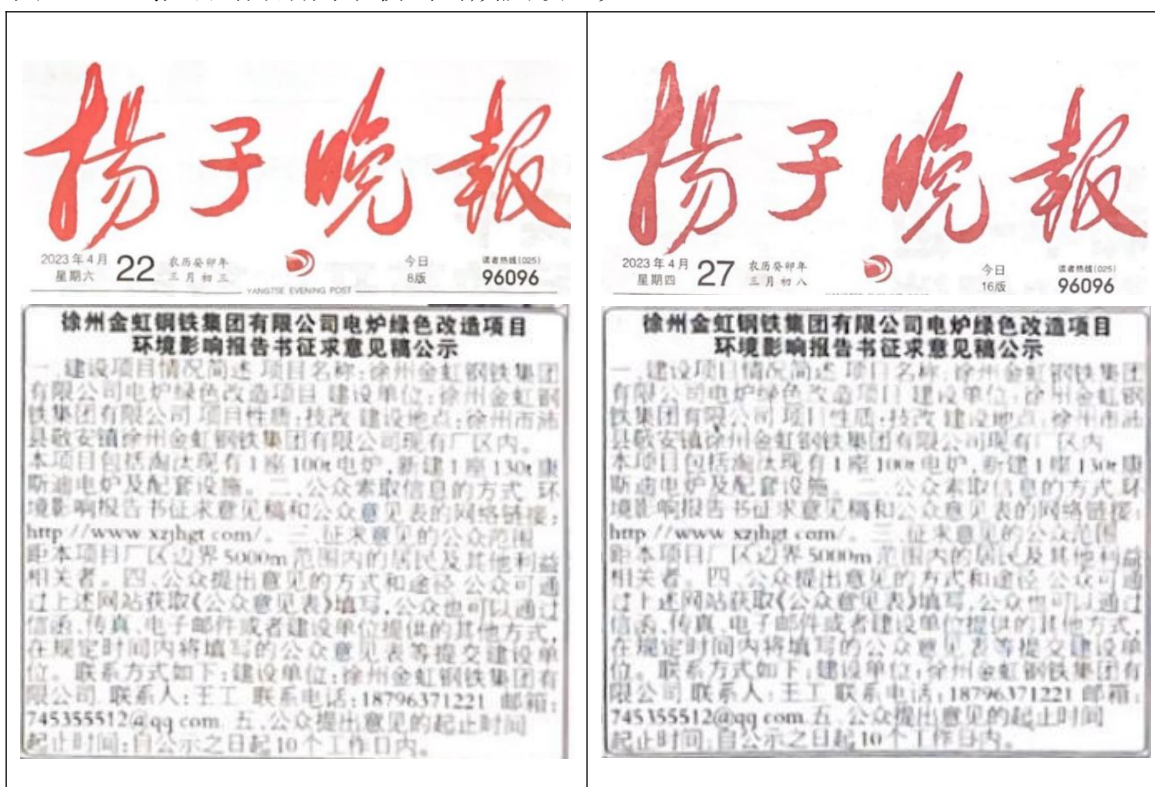 揚子晚報
2023年4月
星期六
22
农历癸卯年
三月初三
今日
8版
读者热线(025)
96096
YANGTSE EVENING POST
徐州金虹钢铁集团有限公司电炉绿色改造项目
环境影响报告书征求意见稿公示
一、建设项目情况简述 项目名称:徐州金虹钢铁集团
有限公司电炉绿色改造项目 建设单位:徐州金虹钢
铁集团有限公司 项目性质:技改 建设地点:徐州市沛
县敬安镇徐州金虹钢铁集团有限公司现有厂区内。
本项目包括淘汰现有1座100t电炉,新建1座130t康
斯迪电炉及配套设施。二、公众索取信息的方式 环
境影响报告书征求意见稿和公众意见表的网络链接:
http://www.xzjhgt.com/。三、征求意见的公众范围
距本项目厂区边界5000m范围内的居民及其他利益
相关者。四、公众提出意见的方式和途径 公众可通
过上述网站获取《公众意见表》填写,公众也可以通过
信函、传真、电子邮件或者建设单位提供的其他方式,
在规定时间内将填写的公众意见表等提交建设单
位。联系方式如下:建设单位:徐州金虹钢铁集团有
限公司 联系人:王工 联系电话:18796371221 邮箱:
745355512@qq.com 五、公众提出意见的起止时间
起止时间:自公示之日起10个工作日内。
揚子晚報
2023年4月
星期四
27
农历癸卯年
三月初八
今日
16版
读者热线(025)
96096
徐州金虹钢铁集团有限公司电炉绿色改造项目
环境影响报告书征求意见稿公示
一、建设项目情况简述 项目名称:徐州金虹钢铁集团
有限公司电炉绿色改造项目 建设单位:徐州金虹钢
铁集团有限公司 项目性质:技改 建设地点:徐州市沛
县敬安镇徐州金虹钢铁集团有限公司现有厂区内
本项目包括淘汰现有1座100t电炉,新建1座130t康
斯迪电炉及配套设施 二、公众索取信息的方式 环
境影响报告书征求意见稿和公众意见表的网络链接:
http://www.xzjhgt.com/。三、征求意见的公众范围
距本项目厂区边界5000m范围内的居民及其他利益
相关者。四、公众提出意见的方式和途径 公众可通
过上述网站获取《公众意见表》填写,公众也可以通过
信函、传真、电子邮件或者建设单位提供的其他方式,
在规定时间内将填写的公众意见表等提交建设单
位。联系方式如下:建设单位:徐州金虹钢铁集团有
限公司 联系人:王工 联系电话:18796371221 邮箱:
745355512@qq.com 五、公众提出意见的起止时间
起止时间:自公示之日起10个工作日内。